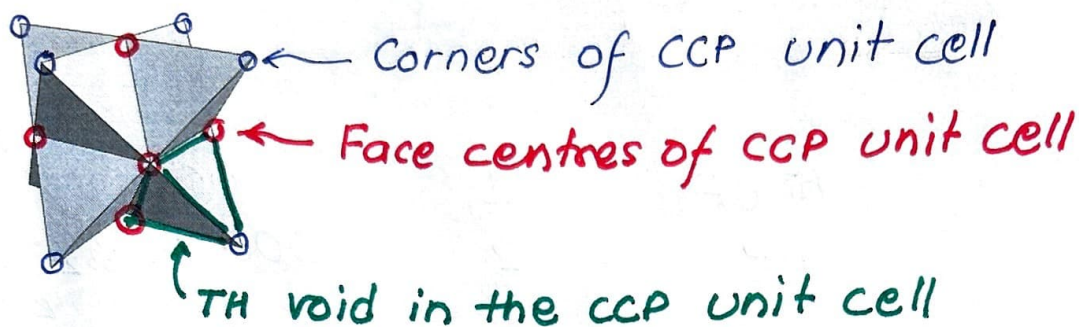 Corners of CCP unit cell
Face centres of CCP unit cell
TH void in the CCP unit cell